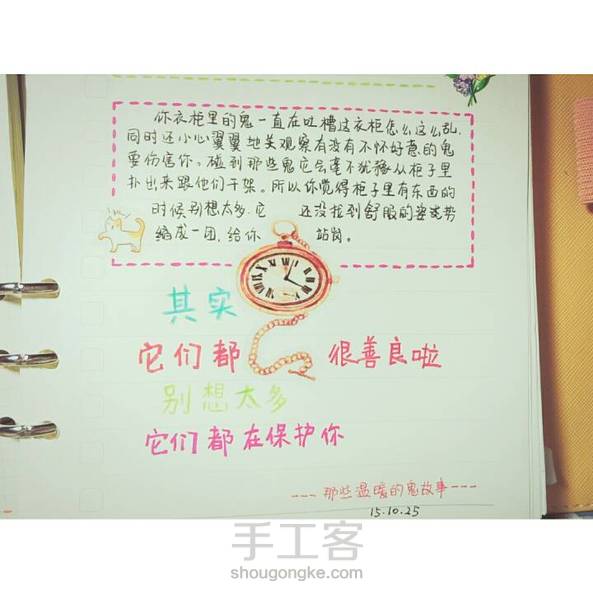 你衣柜里的鬼一直在吐槽这衣柜怎么这么乱,
同时还小心翼翼地关观察有没有不怀好意的鬼
要伤害你。碰到那些鬼它会毫不犹豫从柜子里
扑出来跟他们干架。所以你觉得柜子里有东西的
时候别想太多.它 还没找到舒服的姿势
缩成一团.给你 站岗。
其实
它们都 很善良啦
别想太多
它们都在保护你
---那些温暖的鬼故事---
15.10.25
手工客
shougongke.com